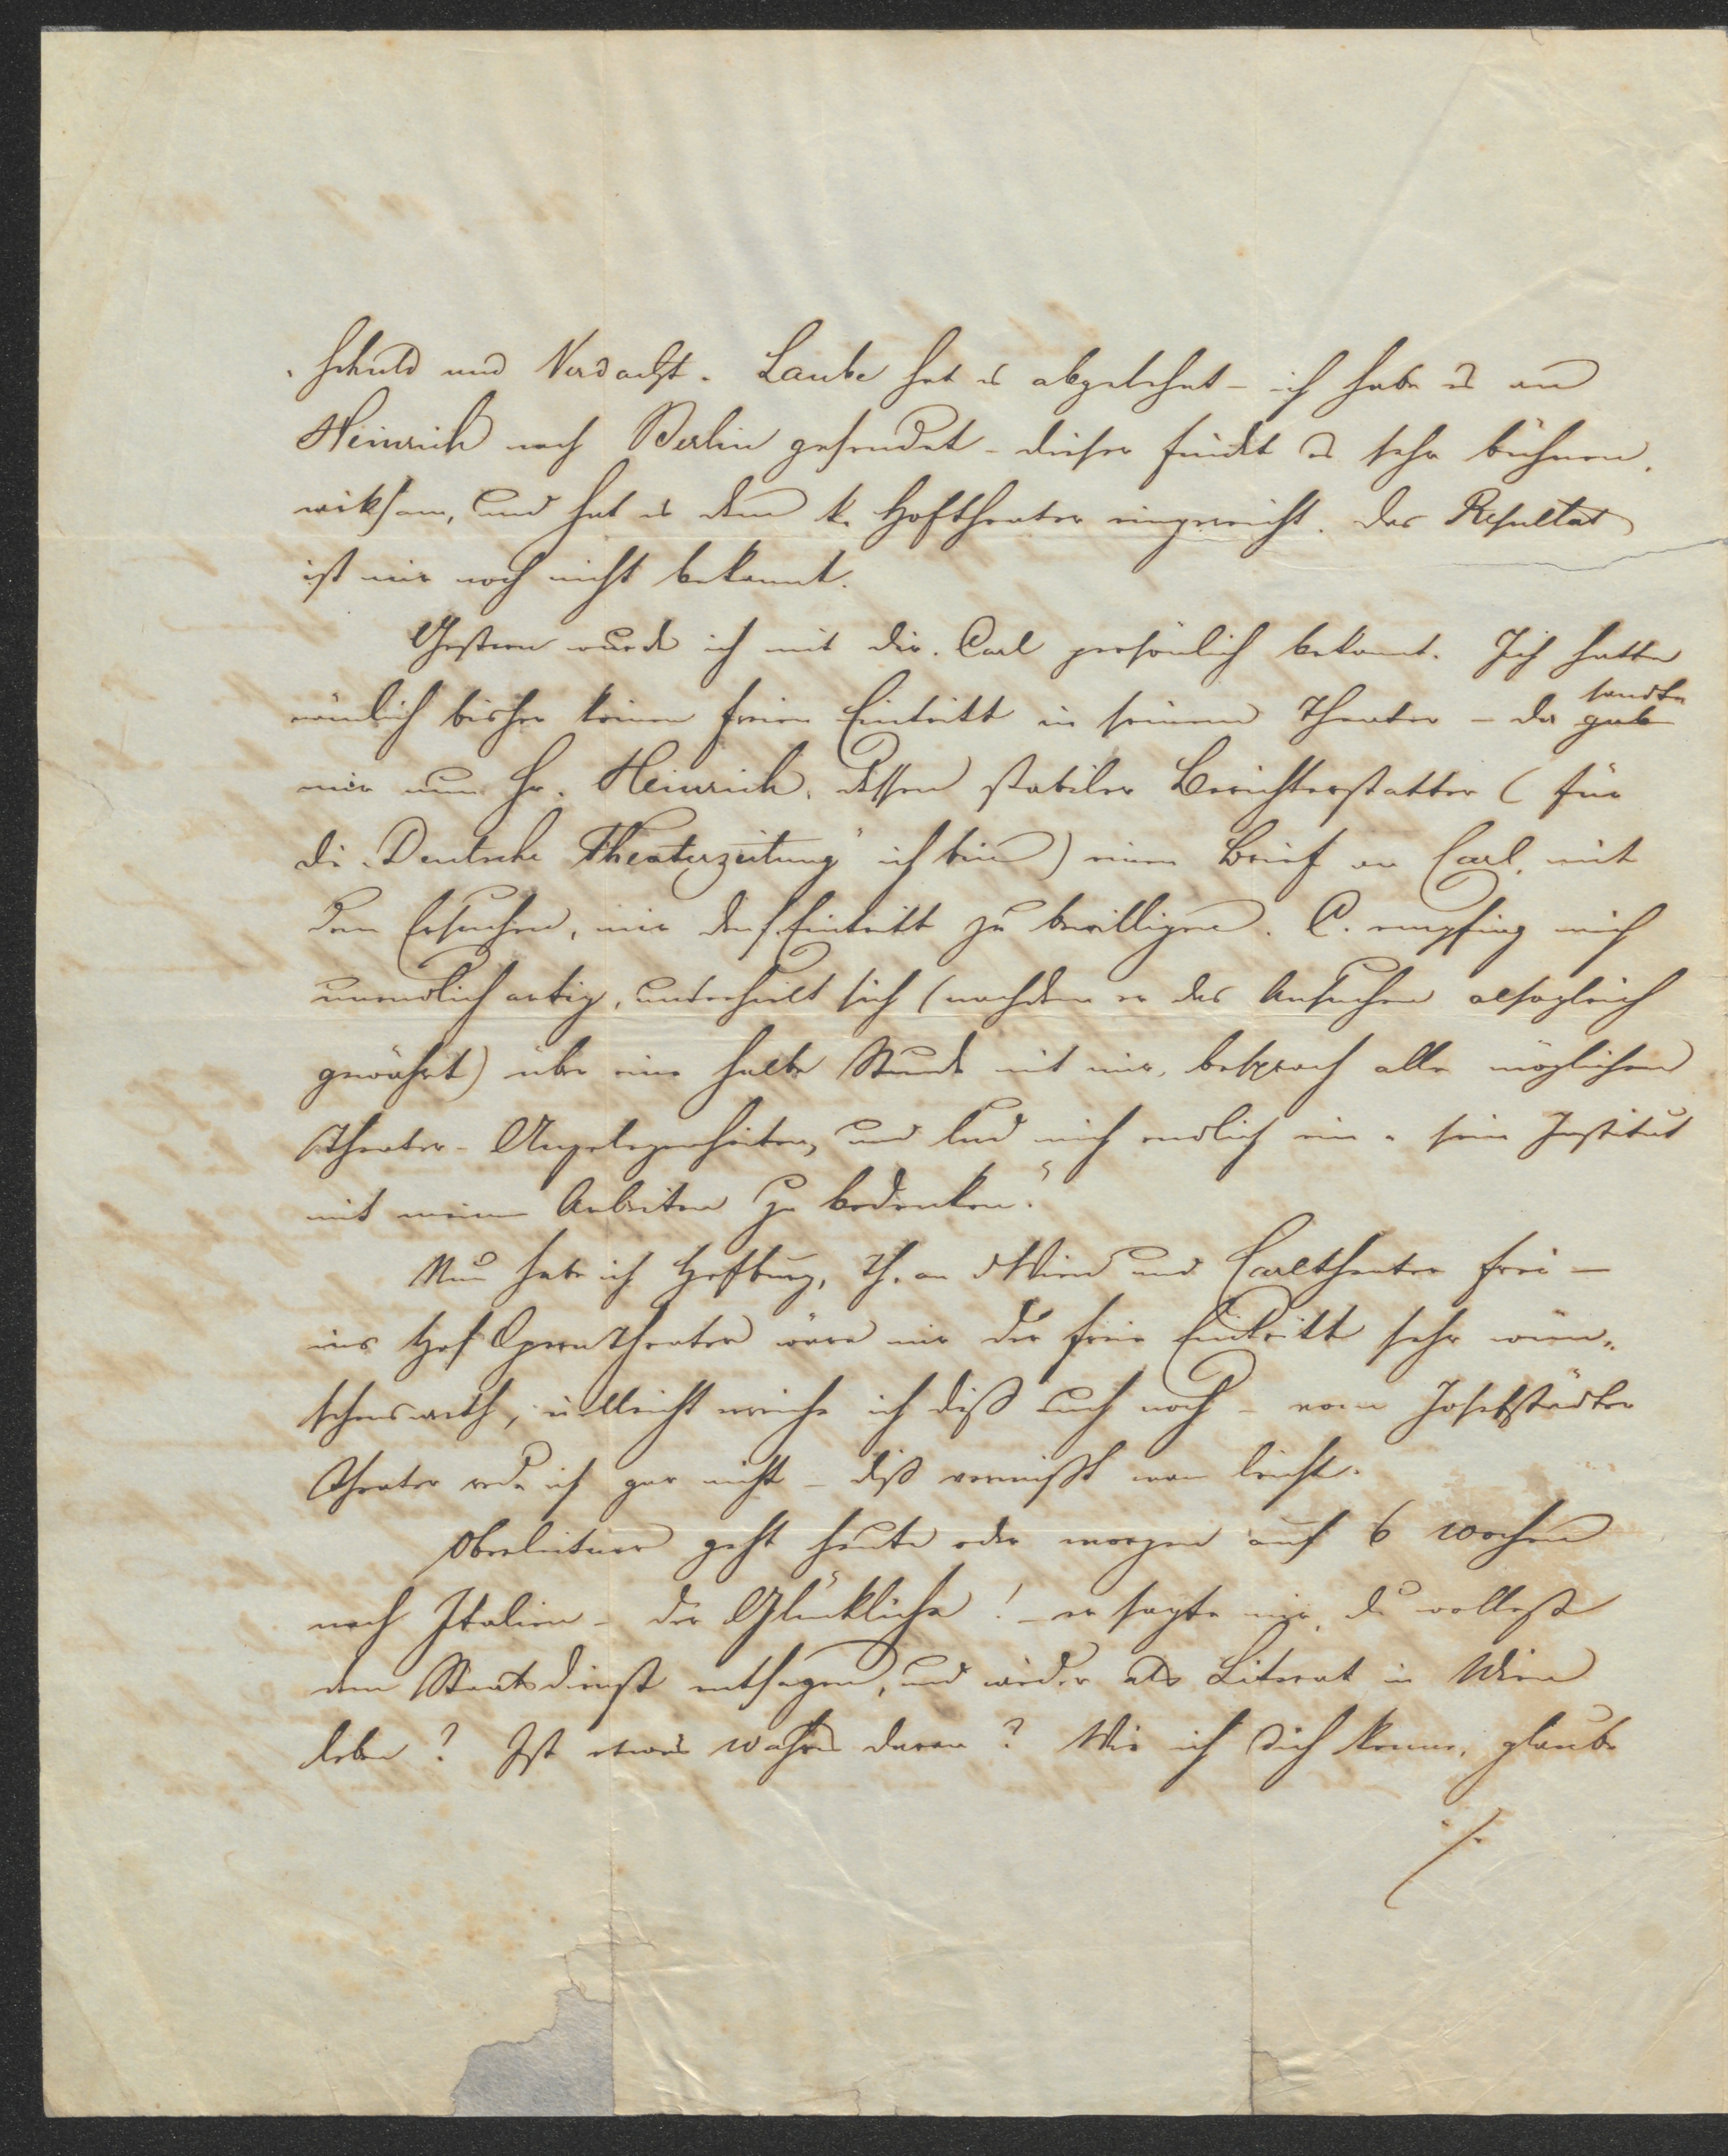 „Schuld und Verdacht". Laube hat es abgelehnt – ich habe es an
Heinrich nach Berlin gesendet – dieser findet es sehr bühnen-
wirksam, und hat es dem k. Hoftheater eingereicht. Das Resultat
ist mir noch nicht bekannt.
Gestern wurde ich mit Dir. Carl persönlich bekannt. Ich hatte
nämlich bisher keinen freien Eintritt in seinem Theater – da gab sandte
mir nun Hr. Heinrich, dessen stabiler Berichterstatter (für
die „Deutsche Theaterzeitung" ich bin) einen Brief an Carl, mit
dem Ersuchen, mir den f. Eintritt zu bewilligen. C. empfing mich
unendlich artig, unterhielt sich (nachdem er das Ansuchen alsogleich
gewährt) über eine halbe Stunde mit mir, besprach alle möglichen
Theater-Angelegenheiten, und lud mich endlich ein „sein Institut
mit meinen Arbeiten zu bedenken."
Nun habe ich Hofburg, Th. an d Wien und Carltheater frei –
ins Hof Operntheater wäre mir der freie Eintritt sehr wün-
schenswerth, vielleicht erreiche ich diß auch noch – vom Josefstädter
Theater rede ich gar nicht – diß vermißt man leicht.
Oberleitner geht heute oder morgen auf 6 Wochen
nach Italien – der Glückliche! – er sagte mir, du wollest
dem Staatsdienst entsagen, und wieder als Literat in Wien
leben? Ist etwas wahres daran? Wie ich Dich kenne, glaube
./.